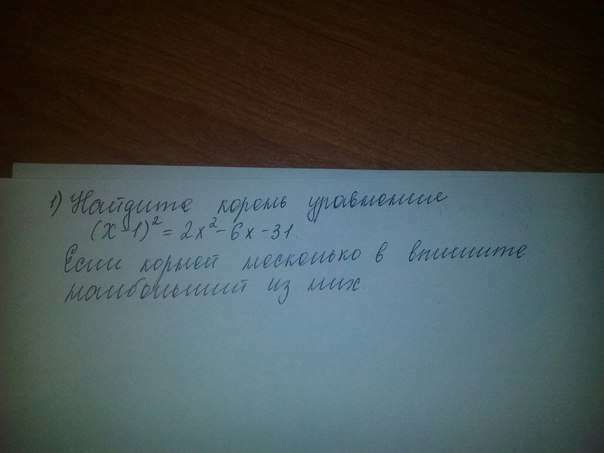 1) Найдите корень уравнение
(x-1)² = 2x² - 6x - 31.
Если корней несколько в впишите
наибольший из них